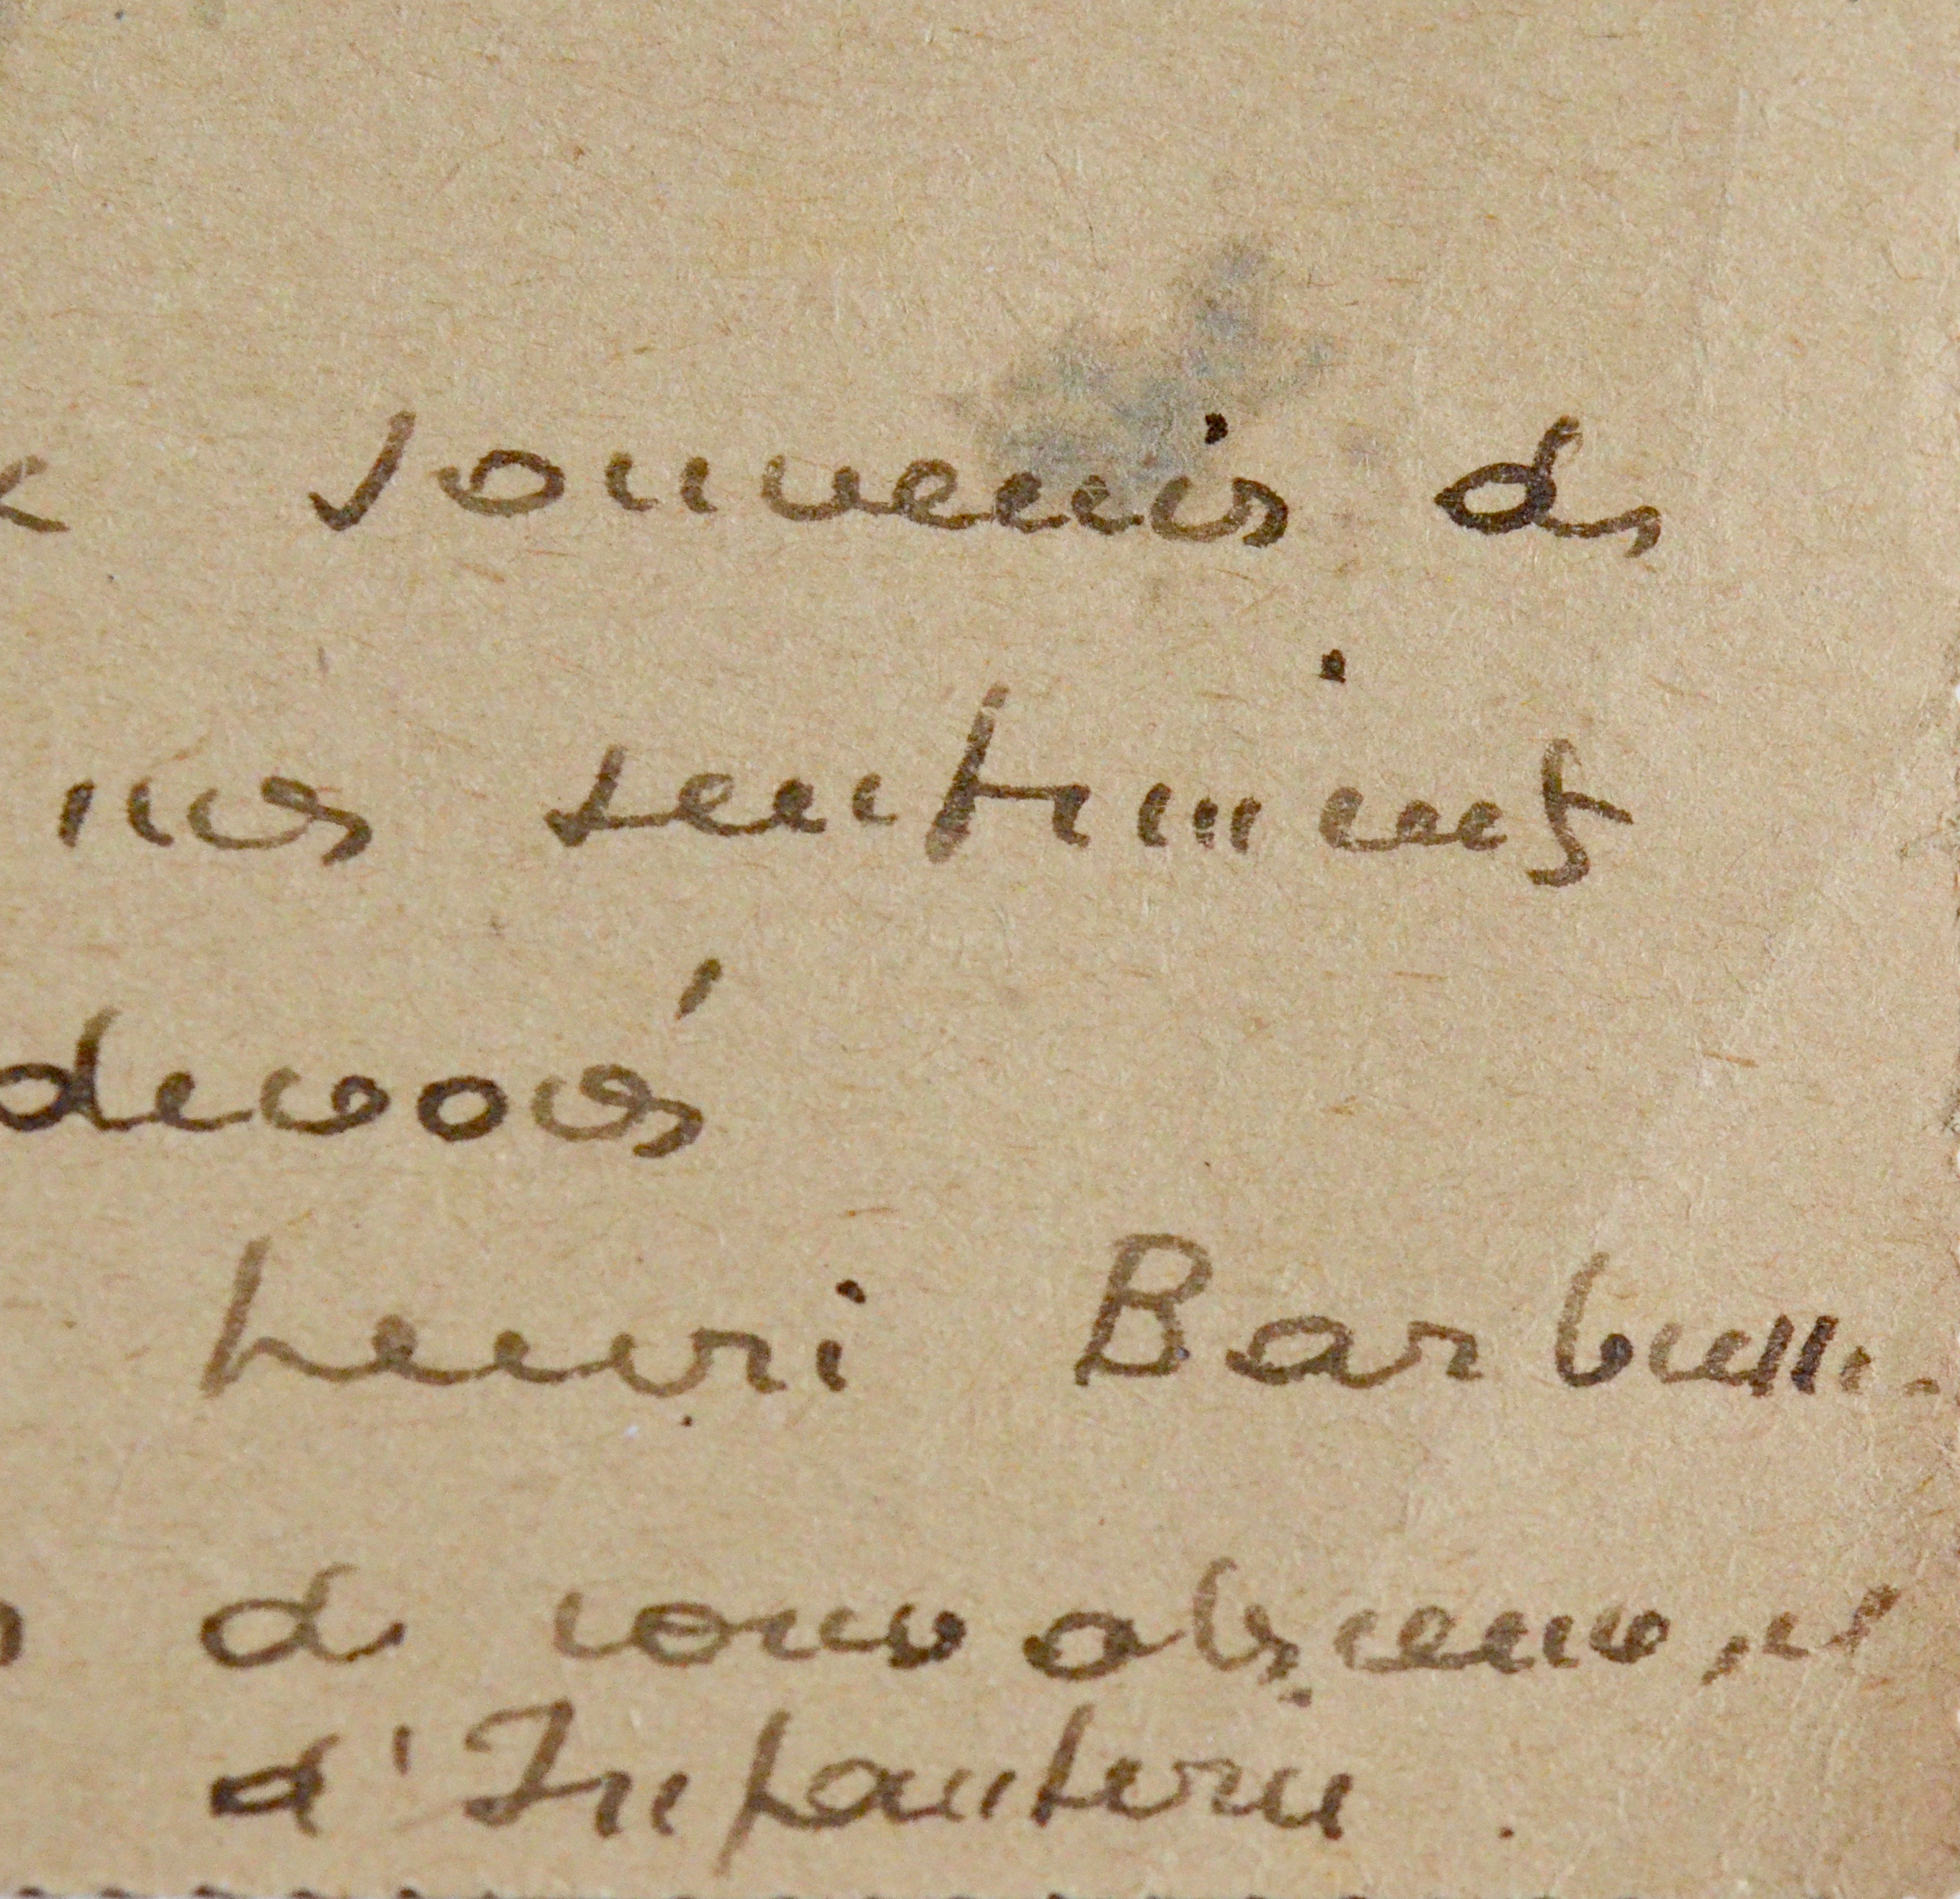 souvenir de
mes sentiments
dévoués
henri Barbusse
de
d'Infanterie